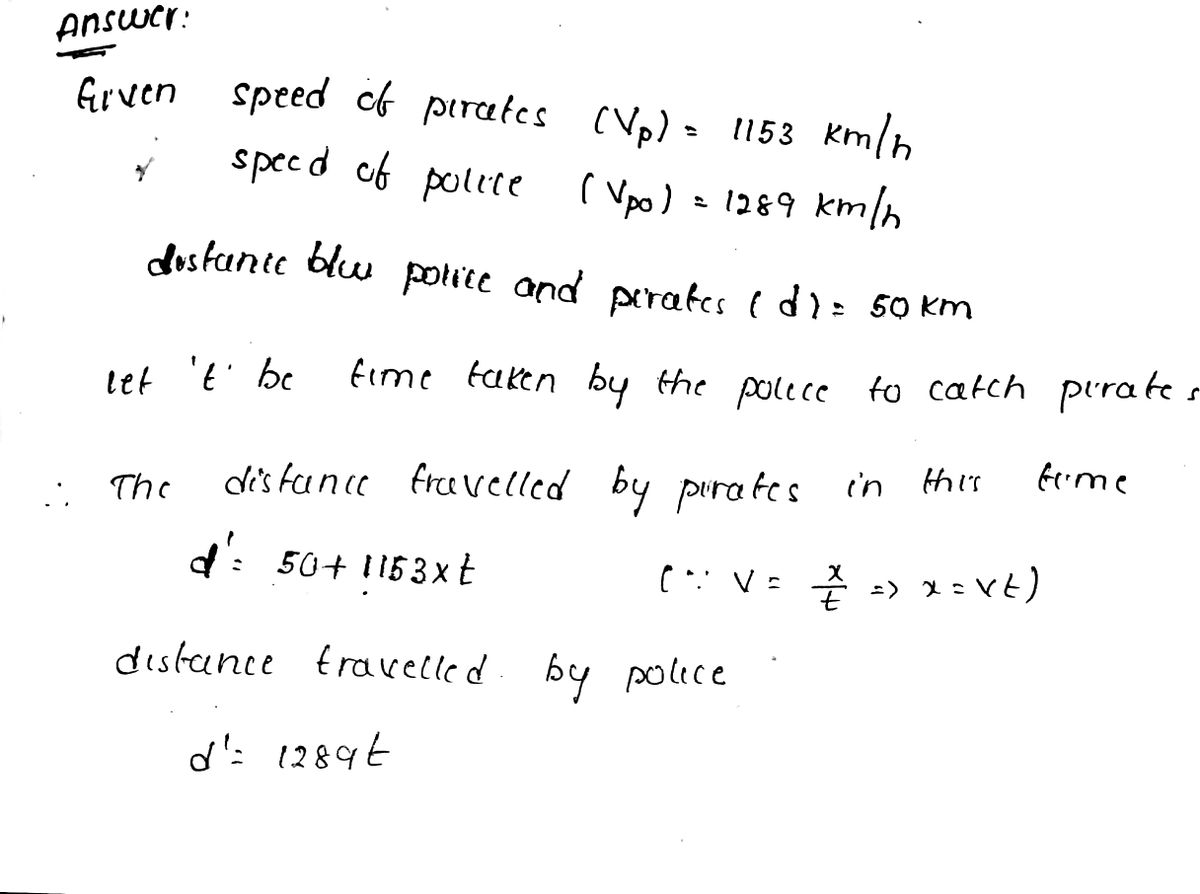 Answer:
Given speed of pirates (Vp) = 1153 km/h
speed of police (Vpo) = 1289 km/h
distance b/w police and pirates (d) = 50 km
let 't' be time taken by the police to catch pirates
∴ The distance travelled by pirates in this time
d' = 50 + 1153 x t (∵ V = x/t => x = vt)
distance travelled by police
d' = 1289t